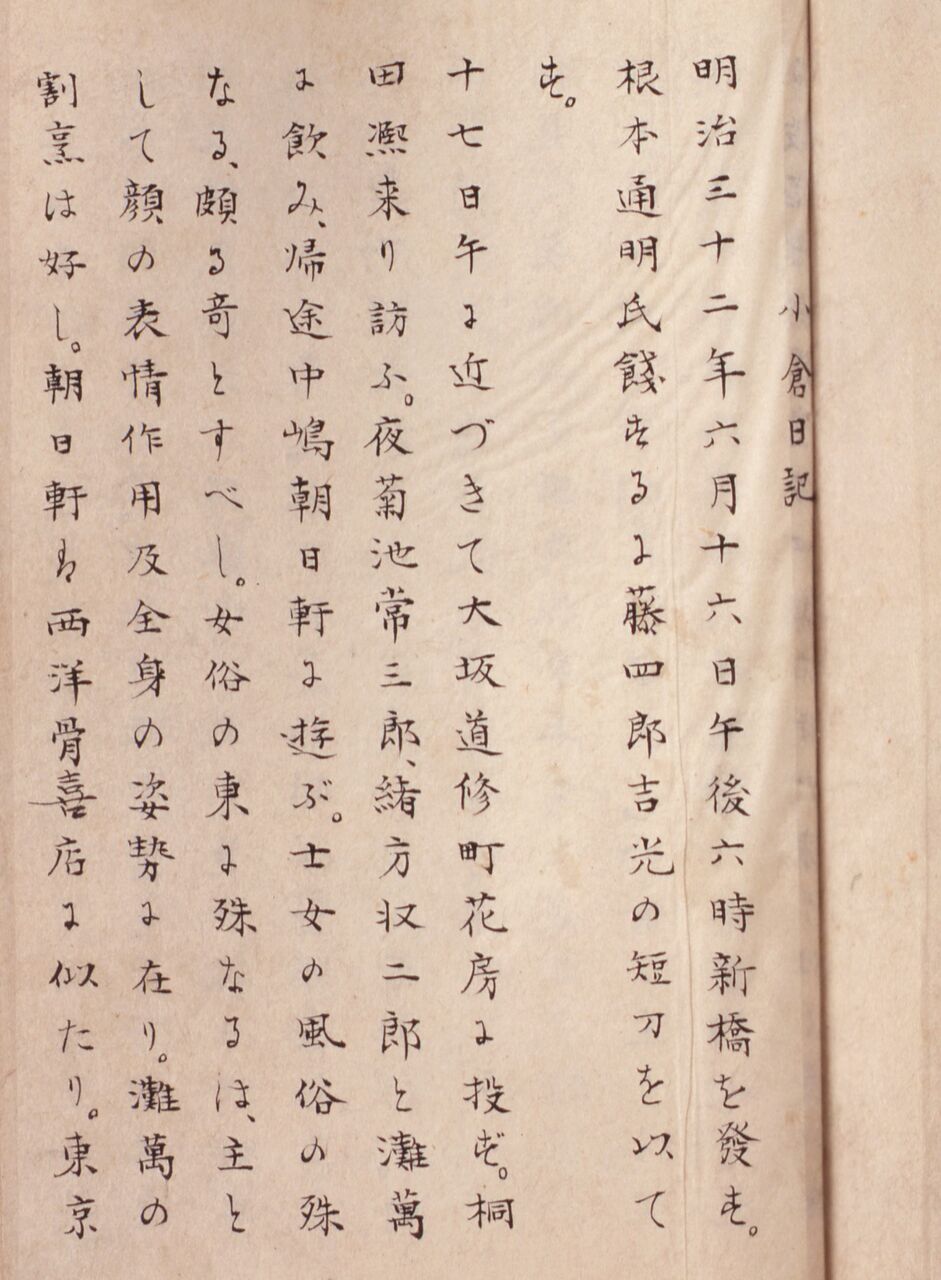 小倉日記
明治三十二年六月十六日午後六時新橋を發す。
根本通明氏餞するに藤四郎吉光の短刀を以て
す。
十七日午に近づきて大坂道修町花房に投ず。桐
田凞来り訪ふ。夜菊池常三郎、緒方収二郎と灘萬
に飲み、帰途中嶋朝日軒に遊ぶ。士女の風俗の殊
なる、頗る奇とすべし。女俗の東に殊なるは、主と
して顔の表情作用及全身の姿勢に在り。灘萬の
割烹は好し。朝日軒は西洋骨喜店に似たり。東京